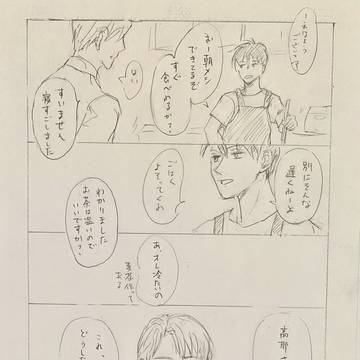 おはよう
ございます
おー朝メシ
できてるぞ
すぐ
食べれるか？
はい
すいません
寝すごしました
別にそんな
遅くねーよ
ごはん
よそってくれ
わかりました
お茶は温いので
いいですか？
あ、オレ冷たいの
麦茶作って
ある
高那
これ、
どうし